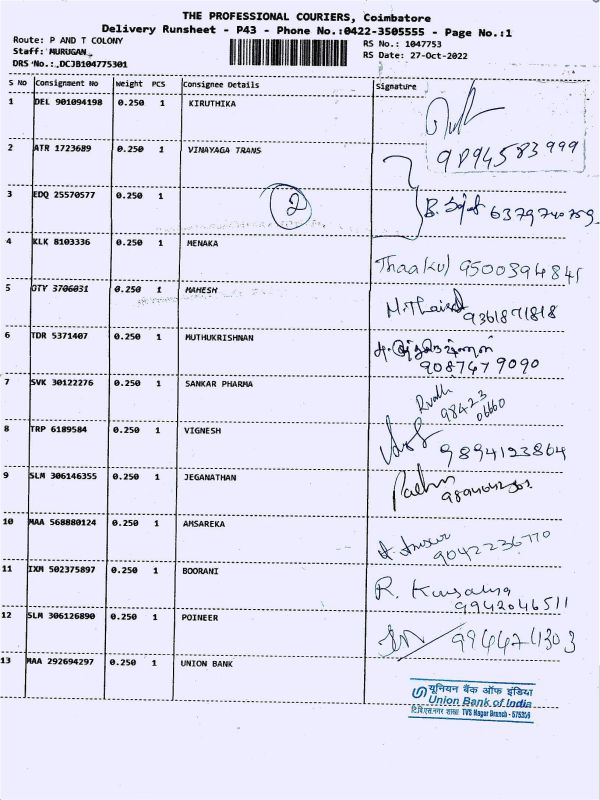 THE PROFESSIONAL COURIERS, Coimbatore
Delivery Runsheet - P43 - Phone No.:0422-3505555 - Page No.:1
Route: P AND T COLONY
RS No.: 1047753
Staff: MURUGAN
RS Date: 27-Oct-2022
DRS No.: DCJB104775301
S NO Consignment No Weight PCS Consignee Details Signature
1 DEL 901094198 0.250 1 KIRUTHIKA
2 ATR 1723689 0.250 1 VINAYAGA TRANS
3 EDQ 25570577 0.250 1 2 B.
4 KLK 8103336 0.250 1 MENAKA Thaakul 9500394841
5 OTY 3706031 0.250 1 MAHESH 9361871818
6 TDR 5371407 0.250 1 MUTHUKRISHNAN 9087479090
7 SVK 30122276 0.250 1 SANKAR PHARMA 98423 06660
8 TRP 6189584 0.250 1 VIGNESH 9894123864
9 SLM 306146355 0.250 1 JEGANATHAN
10 MAA 568880124 0.250 1 AMSAREKA 9042236770
11 IXM 502375897 0.250 1 BOORANI R. Kausalya 9942046511
12 SLM 306126890 0.250 1 POINEER 9944741303
13 MAA 292694297 0.250 1 UNION BANK
यूनियन बैंक ऑफ इंडिया
Union Bank of India
टि.वि.एस.नगर शाखा TVS Nagar Branch -